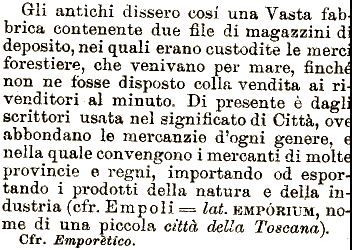 Gli antichi dissero cosí una Vasta fab-
brica contenente due file di magazzini di
deposito, nei quali erano custodite le merci
forestiere, che venivano per mare, finché
non ne fosse disposto colla vendita ai ri-
venditori al minuto. Di presente è dagli
scrittori usata nel significato di Città, ove
abbondano le mercanzie d'ogni genere, e
nella quale convengono i mercanti di molte
provincie e regni, importando od espor-
tando i prodotti della natura e della in-
dustria (cfr. Empoli = lat. EMPÓRIUM, no-
me di una piccola città della Toscana).
Cfr. Emporètico.